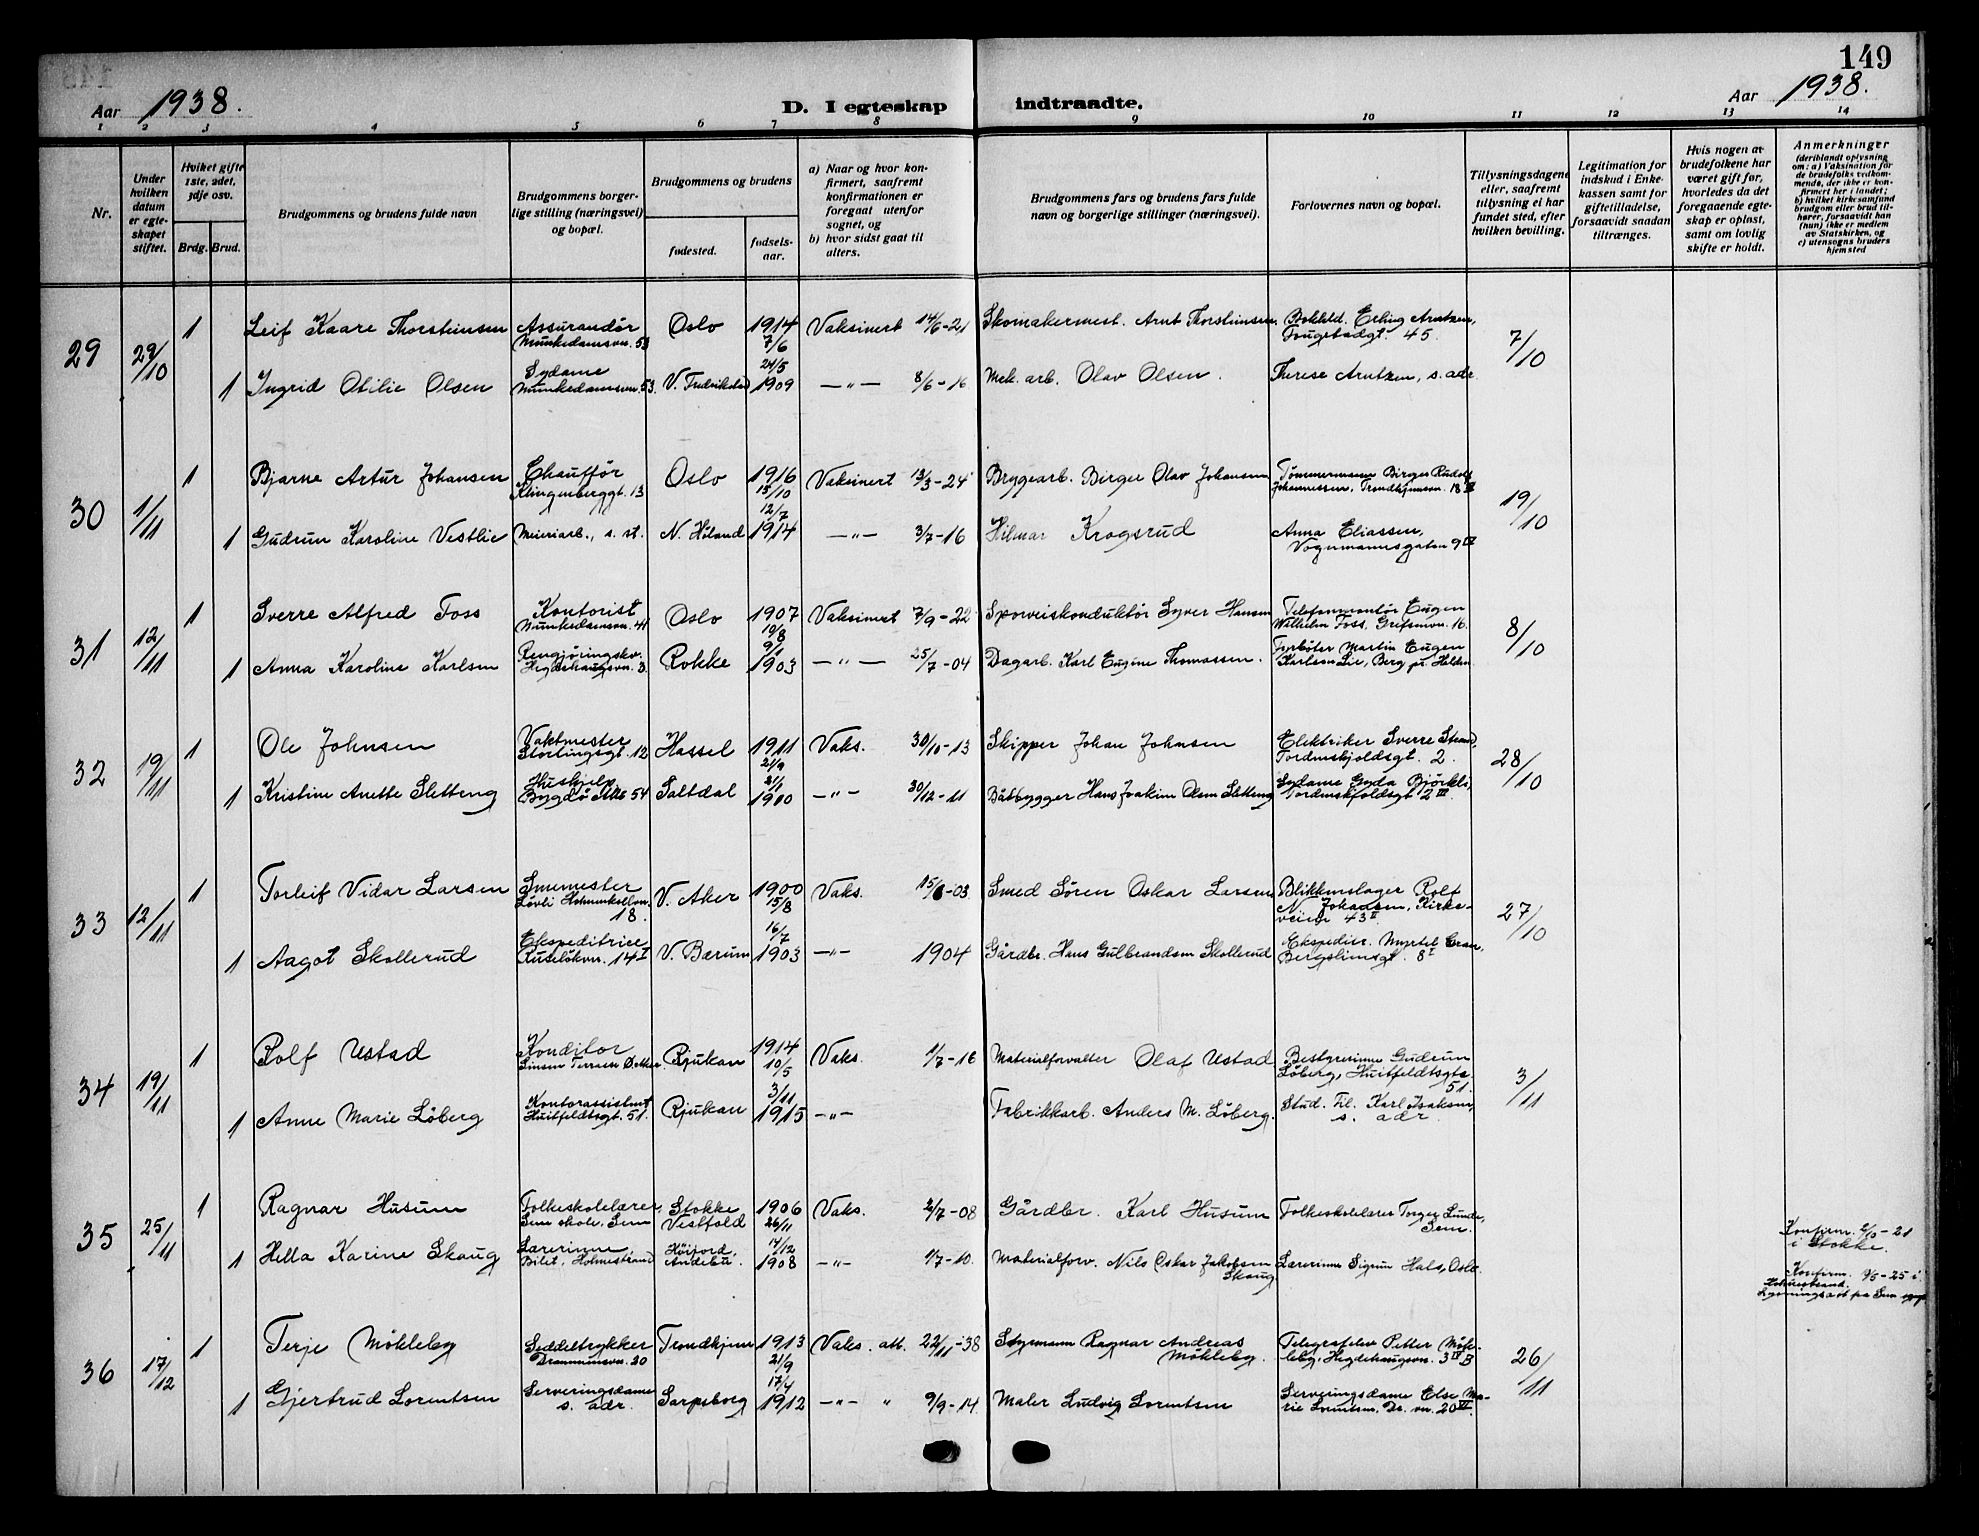 149
Aar 1938.
D. I egteskap indtraadte.
Aar 1938.
1 2 3 4 5 6 7 8 9 10 11 12 13 14
Nr.
Under hvilken datum er egteskapet stiftet.
Hviket gifte 1ste, 2det, 3dje osv.
Brdg. Brud.
Brudgommens og brudens fulde navn
Brudgommens borgerlige stilling (næringsvei) og bopæl.
Brudgommens og brudens
fødested.
fødselsaar.
a) Naar og hvor konfirmert, saafremt konfirmationen er foregaat utenfor sognet, og
b) hvor sidst gaat til alters.
Brudgommens fars og brudens fars fulde navn og borgerlige stillinger (næringsvei).
Forlovernes navn og bopæl.
Tillysningsdagene eller, saafremt tillysning ei har fundet sted, efter hvilken bevilling.
Legitimation for indskud i Enkekassen samt for giftetilladelse, forsaavidt saadan tiltrænges.
Hvis nogen av brudefolkene har været gift før, hvorledes da det foregaaende egteskap er opløst, samt om lovlig skifte er holdt.
Anmerkninger
(deriblandt oplysning om: a) Vaksination for de brudefolks vedkommende, der ikke er konfirmert her i landet; b) hvilket kirkesamfund brudgom eller brud tilhører, forsaavidt han (hun) ikke er medlem av Statskirken, og c) utensogns bruders hjemsted
29 29/10 1 Leif Kaare Thorsteinsen Assurandør Munkedamsvn. 53 Oslo 1914 7/6 Vaksinert 14/6-21 Skomakermest. Arnt Thorsteinsen Bokhld. Erling Arntzen, Fougstadgt. 45. 7/10
1 Ingrid Otilie Olsen Sydame Munkedamsvn. 53. V. Fredrikstad 24/5 1909 —"— 8/6-16 Mek. arb. Olav Olsen. Therese Arntzen, s. adr.
30 1/11 1 Bjarne Artur Johansen Chauffør Klingenberggt. 13 Oslo 1916 15/10 Vaksinert 13/3-24 Bryggearb. Birger Olav Johansen Tømmermann Birger Rudolf Johannessen, Trondhjemsvn. 18 19/10
1 Gudrun Karoline Vestlie Meieriarb., s. st. N. Høland 12/7 1914 —"— 3/7-16 Hilmar Krogsrud Anna Eliassen, Vognmannsgaten 9
31 12/11 1 Sverre Alfred Foss Kontorist Munkedamsvn. 41 Oslo 1907 19/8 Vaksinert 7/9-22 Sporveiskonduktør Syver Hansen Telefonmontør Eugen Wilhelm Foss, Grefsenvn. 16. 8/10
1 Anna Karoline Karlsen Rengjøringskv. Hegdehaugsvn. 3. Rokke 9/1 1903 —"— 25/7-04 Dagarb. Karl Eugene Thomassen. Fyrbøter Martin Eugen Karlsen Lie, Berg pr. Halden
32 19/11 1 Ole Johnsen Vaktmester Stortingsgt. 12 Hassel 1911 21/9 Vaks. 30/10-13 Skipper Johan Johnsen Elektriker Sverre Strand, Tordenskjoldsgt. 2. 28/10
1 Kristine Anette Sletteng Hushjelp Bygdø Allé 54 Saltdal 31/1 1910 —"— 30/12-11 Båtbygger Hans Joakim Olsen Sletteng Sydame Gyda Bjørkli, Tordenskjoldsgt. 2 III.
33 12/11 1 Torleif Vidar Larsen Smemester Løvli Holmenkollvn. 18. V. Aker 1900 15/8 Vaks. 15/6-03 Smed Søren Oskar Larsen Blikkenslager Rolf N. Johansen, Kirkeveien 43 II 27/10
1 Aagot Skollerud Ekspeditrice Ruseløkvn. 14 I V. Bærum 16/7 1903 —"— 1904 Gårdbr. Hans Gulbrandsen Skollerud Ekspeditr. Myrtel Bergsliensgt. 8 I
34 19/11 1 Rolf Ustad Konditor Sinsen Terrasse Ø. Aker Rjukan 1914 10/5 Vaks. 1/7-16 Materialforvalter Olaf Ustad Bestyrerinne Gudrun Løberg, Huitfeldtsgt. 51. 3/11
1 Anne Marie Løberg Kontorassistent Huitfeldtsgt. 51. Rjukan 3/11 1915 —"— Fabrikkarb. Anders M. Løberg. Stud. fil. Karl Isaksen, s. adr.
35 25/11 1 Ragnar Husum Folkeskolelærer, Sem skole, Sem Stokke Vestfold 1906 26/11 Vaks. 2/7-08 Gårdbr. Karl Husum Folkeskolelærer Torger Lunde, Sem. Konfirm. 2/10-21 i Stokke.
1 Hella Karine Skaug Lærerinne, Bilet, Holmestrand Høijord, Andebu. 14/12 1908 —"— 1/7-10. Materialforv. Nils Oskar Jakobsen Skaug Lærerinne Sigrun Hals, Oslo. Konfirm. 9/5-25 i Holmestrand. Lysningsatt fra Sem
36 17/12 1 Terje Møkleby Seddeltrykker Drammensvn. 20 Trondhjem 1913 21/9 Vaks. att. 22/11-38 Styrmann Ragnar Andreas Møkleby. Telegrafelev Petter Møkleby, Hegdehaugsvn. 3 IV B 26/11
1 Gjertrud Lorentsen Serveringsdame s. adr. Sarpsborg 17/4 1912 —"— " 9/9-14. Maler Ludvig Lorentsen Serveringsdame Else Marie Lorentsen, Dr. vn. 20 VI.